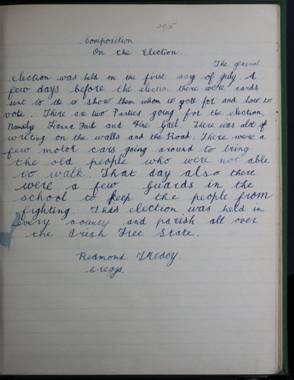 295
Composition
On the Election
The general
election was held on the first day of July. A
few days before the election there were cards
sent to the to show them whom to vote for and how to
vote. There are two Parties going for the election
Namely Fianna Fail and Fine Gael. There was alot of
writing on the walls and the Road. There were a
few motor cars going around to bring
the old people who were not able
to walk. That day also there
were a few guards in the
school to keep the people from
fighting. This election was held in
every county and parish all over
the Irish Free State.
Redmond